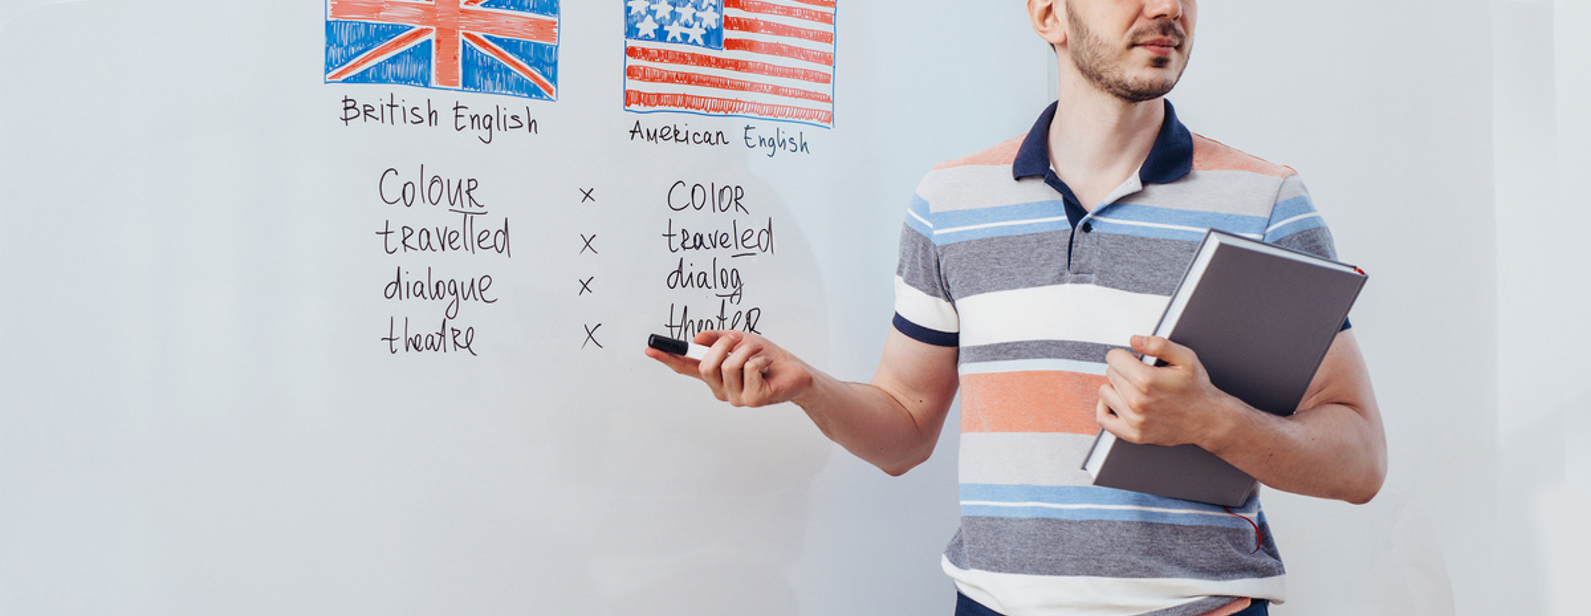 British English
American English
Colour x Color
travelled x traveled
dialogue x dialog
theatre x theater